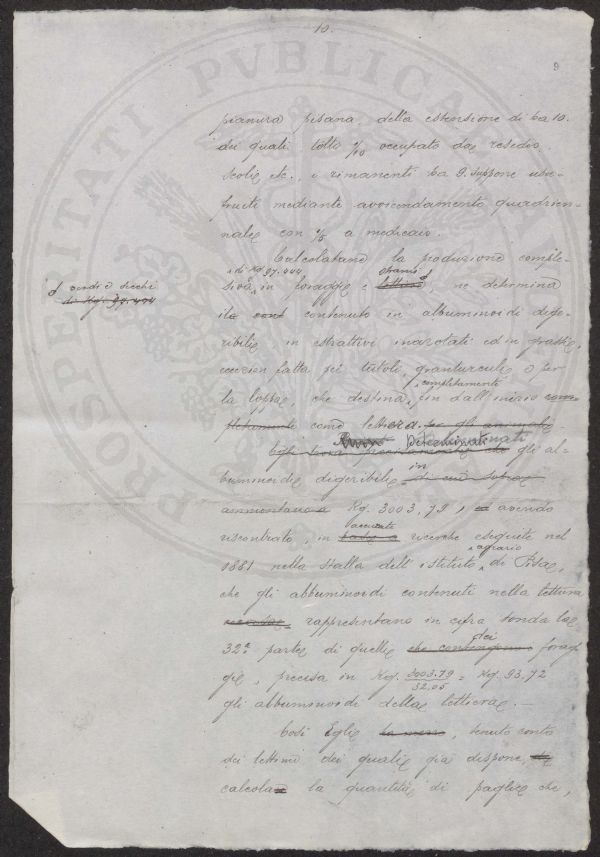 10.
9
pianura pisana, della estensione di ha 10.
dei quali tolto 1/10 occupato da resedio,
scoli etc., i rimanenti ha 9. suppone usu-
fruiti mediante avvicendamento quadrien-
nale con 1/5 a medicaio.
Calcolatane la produzione comples-
siva, di Kg 97.444 in foraggi e strami, ne determina
verdi e secchi
di Kg. 97.444
il contenuto in albuminoidi dige-
ribili, in estrattivi inazotati ed in grassi,
eccezion fatta pei tutoli, granturcule e per
la loppa, che destina, fin dall'inizio completamente
come lettiera. per gli animali.
Determinati gli al-
buminoidi digeribili in
ammontano a Kg. 3003,79, e avendo
riscontrato, in accurate ricerche eseguite nel
1881 nella stalla dell'istituto agrario di Pisa,
che gli albuminoidi contenuti nella lettiera
rappresentano in cifra tonda la
32ª parte di quelli che contengono dei forag-
gi, precisa in Kg. 3003.79/32,05 = Kg. 93,72
gli albuminoidi della lettiera. —
Così Egli, tenuto conto
dei lettimi dei quali già dispone,
calcola la quantità di paglie che,
PROSPERITATI PVBLICAE AVGENDAE